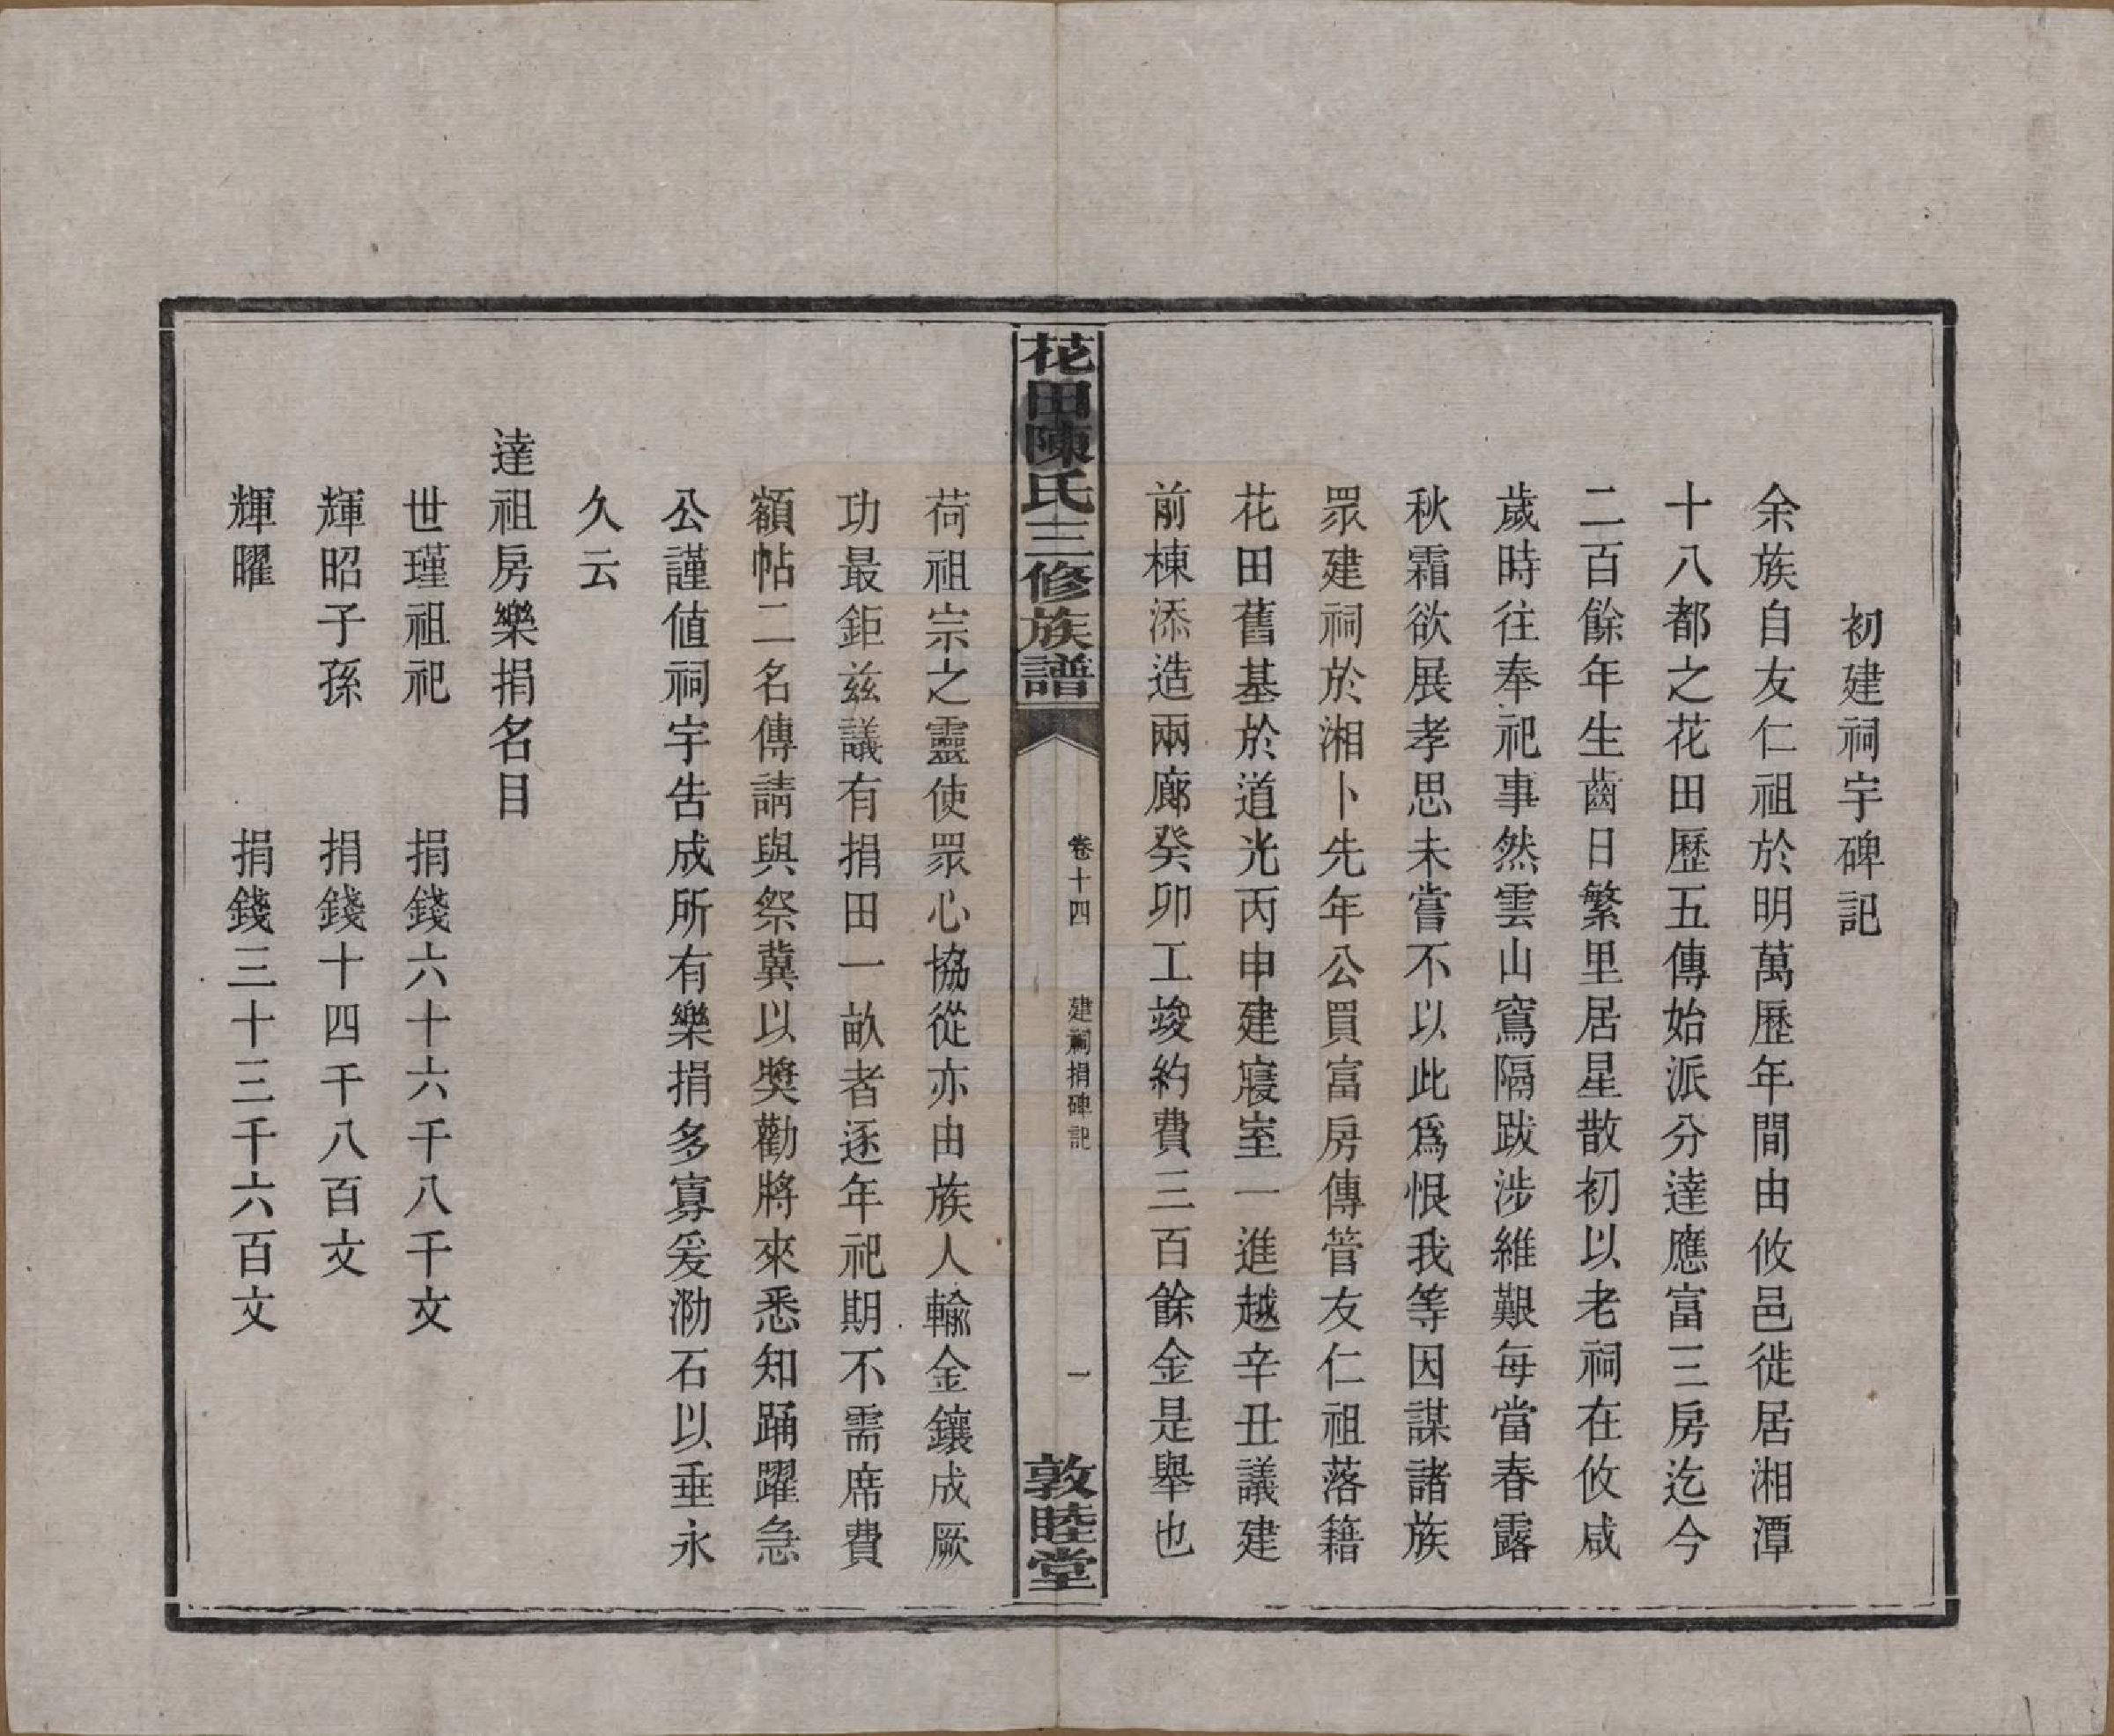 初建祠宇碑記
余族自友仁祖於明萬歷年間由攸邑徙居湘潭
十八都之花田歷五傳始派分達應富三房迄今
二百餘年生齒日繁里居星散初以老祠在攸咸
歲時往奉祀事然雲山窵隔跋涉維艱每當春露
秋霜欲展孝思未嘗不以此爲恨我等因謀諸族
眾建祠於湘卜先年公買富房傳管友仁祖落籍
花田舊基於道光丙申建寢室一進越辛丑議建
前棟添造兩廊癸卯工竣約費三百餘金是舉也
花田陳氏三修族譜
卷十四
建祠捐碑記
一
敦睦堂
荷祖宗之靈使眾心協從亦由族人輸金鑲成厥
功最鉅兹議有捐田一畝者逐年祀期不需席費
額帖二名傳請與祭冀以獎勸將來悉知踊躍急
公謹值祠宇告成所有樂捐多寡爰泐石以垂永
久云
達祖房樂捐名目
世瑾祖祀　捐錢六十六千八千文
輝昭子孫　捐錢十四千八百文
輝曜　捐錢三十三千六百文